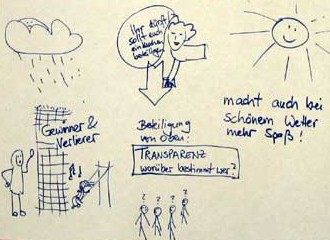 Ihr dürft
sollt euch
ein bisschen
beteiligen
Gewinner &
Verlierer
Beteiligung
von oben:
TRANSPARENZ
worüber bestimmt wer?
? ? ? ?
macht auch bei
schönem Wetter
mehr Spaß!